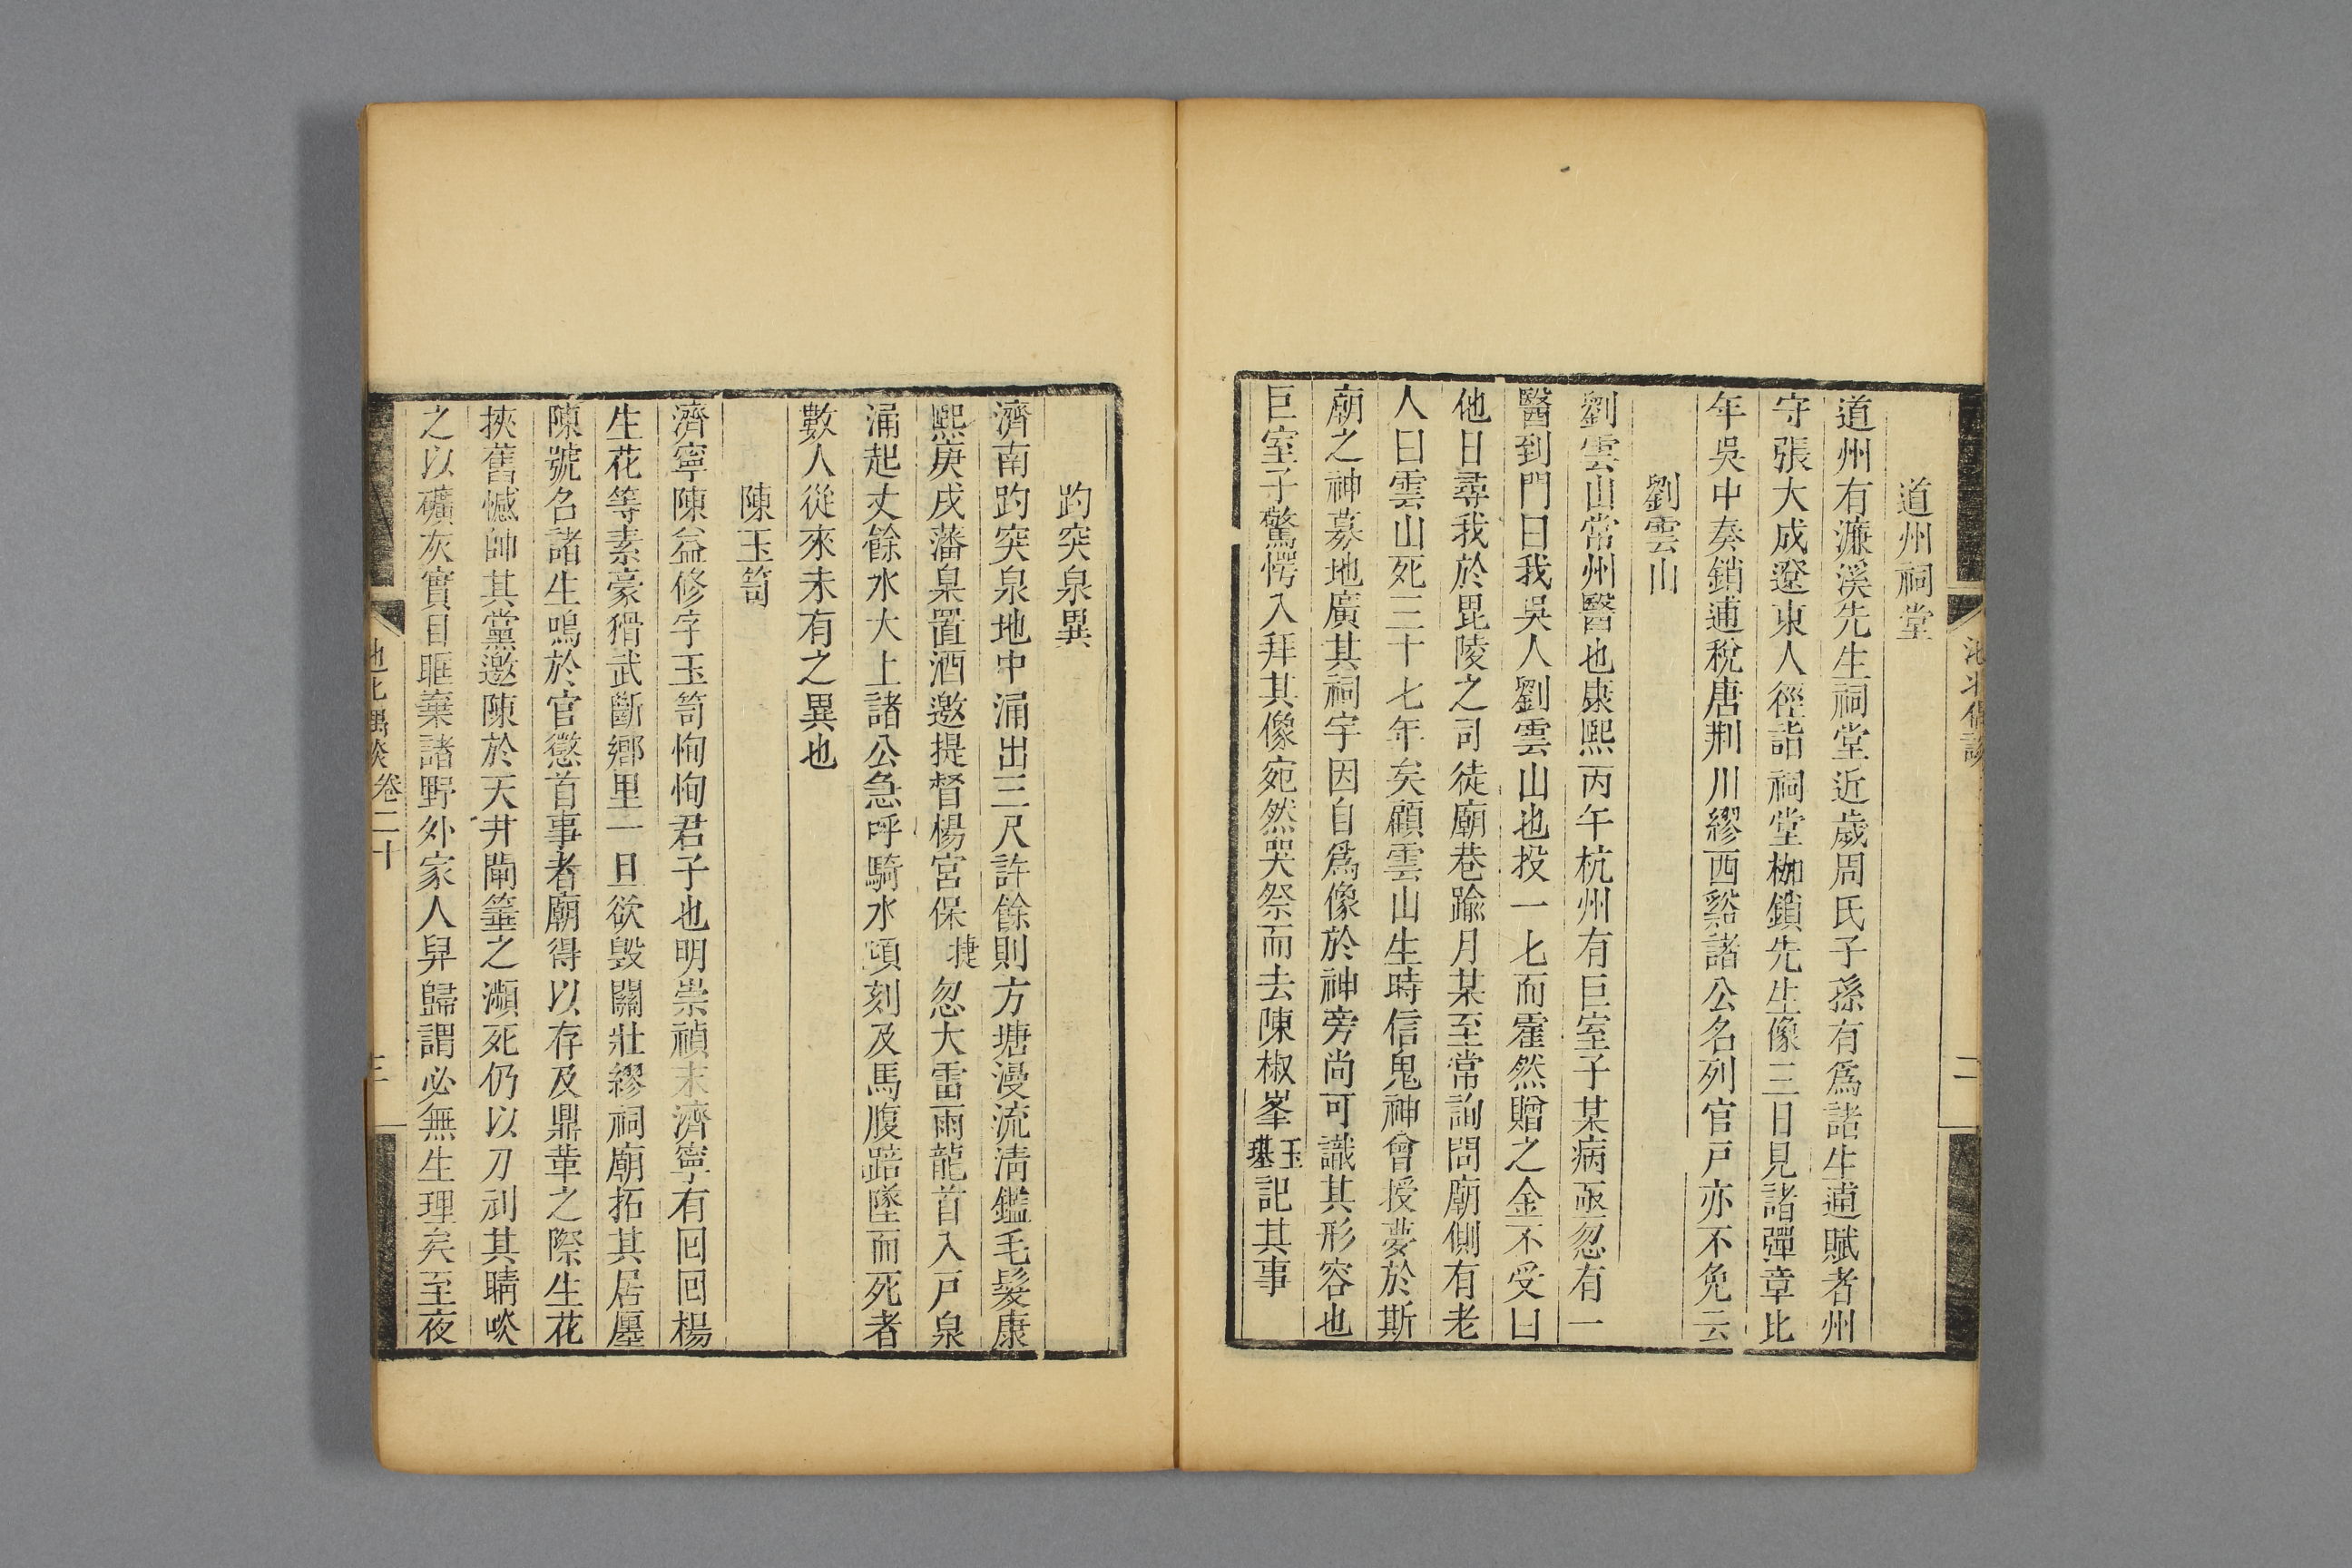 道州祠堂
道州有濂溪先生祠堂近歲周氏子孫有爲諸生逋賦者州
守張大成遼東人徑詣祠堂枷鎖先生像三日見諸彈章比
年吳中奏銷逋稅唐荆川繆西谿諸公名列官戸亦不免云
劉雲山
劉雲山常州醫也康熙丙午杭州有巨室子某病亟忽有一
醫到門曰我吳人劉雲山也投一匕而霍然贈之金不受曰
他日尋我於毘陵之司徒廟巷踰月某至常詢問廟側有老
人曰雲山死三十七年矣顧雲山生時信鬼神曾授夢於斯
廟之神募地廣其祠宇因自爲像於神旁尚可識其形容也
巨室子驚愕入拜其像宛然哭祭而去陳椒峯玉璂記其事
二
趵突泉異
濟南趵突泉地中涌出三尺許餘則方塘漫流淸鑑毛髮康
熙庚戌藩臬置酒邀提督楊宮保捷忽大雷雨龍首入戸泉
涌起丈餘水大上諸公急呼騎水頃刻及馬腹踣墜而死者
數人從來未有之異也
陳玉笥
濟寧陳益修字玉笥恂恂君子也明崇禎末濟寧有回回楊
生花等素豪猾武斷鄉里一旦欲毀關壯繆祠廟拓其居廛
陳號召諸生鳴於官懲首事者廟得以存及鼎革之際生花
挾舊憾帥其黨邀陳於天井閘箠之瀕死仍以刀刓其睛啖
之以礦灰實目眶棄諸野外家人舁歸謂必無生理矣至夜
卷二十